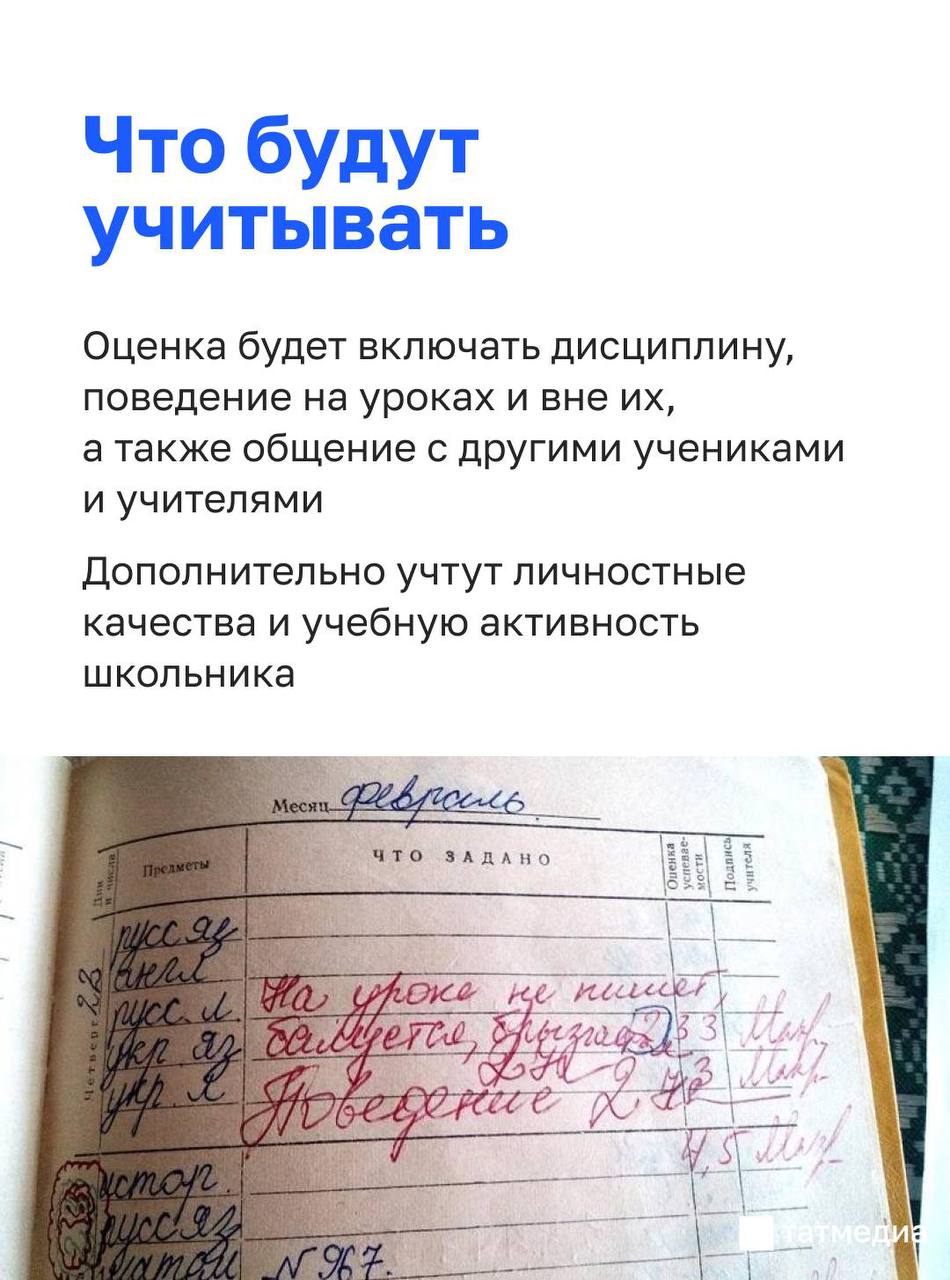 Что будут
учитывать
Оценка будет включать дисциплину,
поведение на уроках и вне их,
а также общение с другими учениками
и учителями
Дополнительно учтут личностные
качества и учебную активность
школьника
Месяц февраль.
Дни и числа
Предметы
ЧТО ЗАДАНО
Оценка успевае-мости
Подпись учителя
Четверг 22
русс яз
англ
русс. л.
На уроке не пишет,
укр. яз
балуется,
2 3 3
укр. л
Поведение 2
3
4,5
истор.
русс яз
матем
N 967.
татмедиа